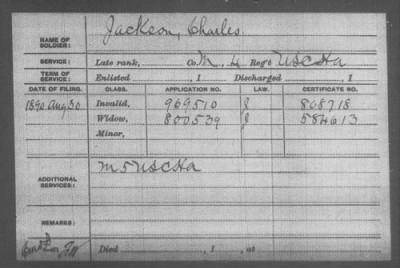 NAME OF SOLDIER: Jackson, Charles.
SERVICE: Late rank, Co. M, 4 Reg't USCHa
TERM OF SERVICE: Enlisted , 1 Discharged , 1
DATE OF FILING. CLASS. APPLICATION NO. LAW. CERTIFICATE NO.
1890 Aug 30 Invalid, 969510 868718
Widow, 800539 584613
Minor,
ADDITIONAL SERVICES: M 5 USCHa
REMARKS:
Died , 1 , at